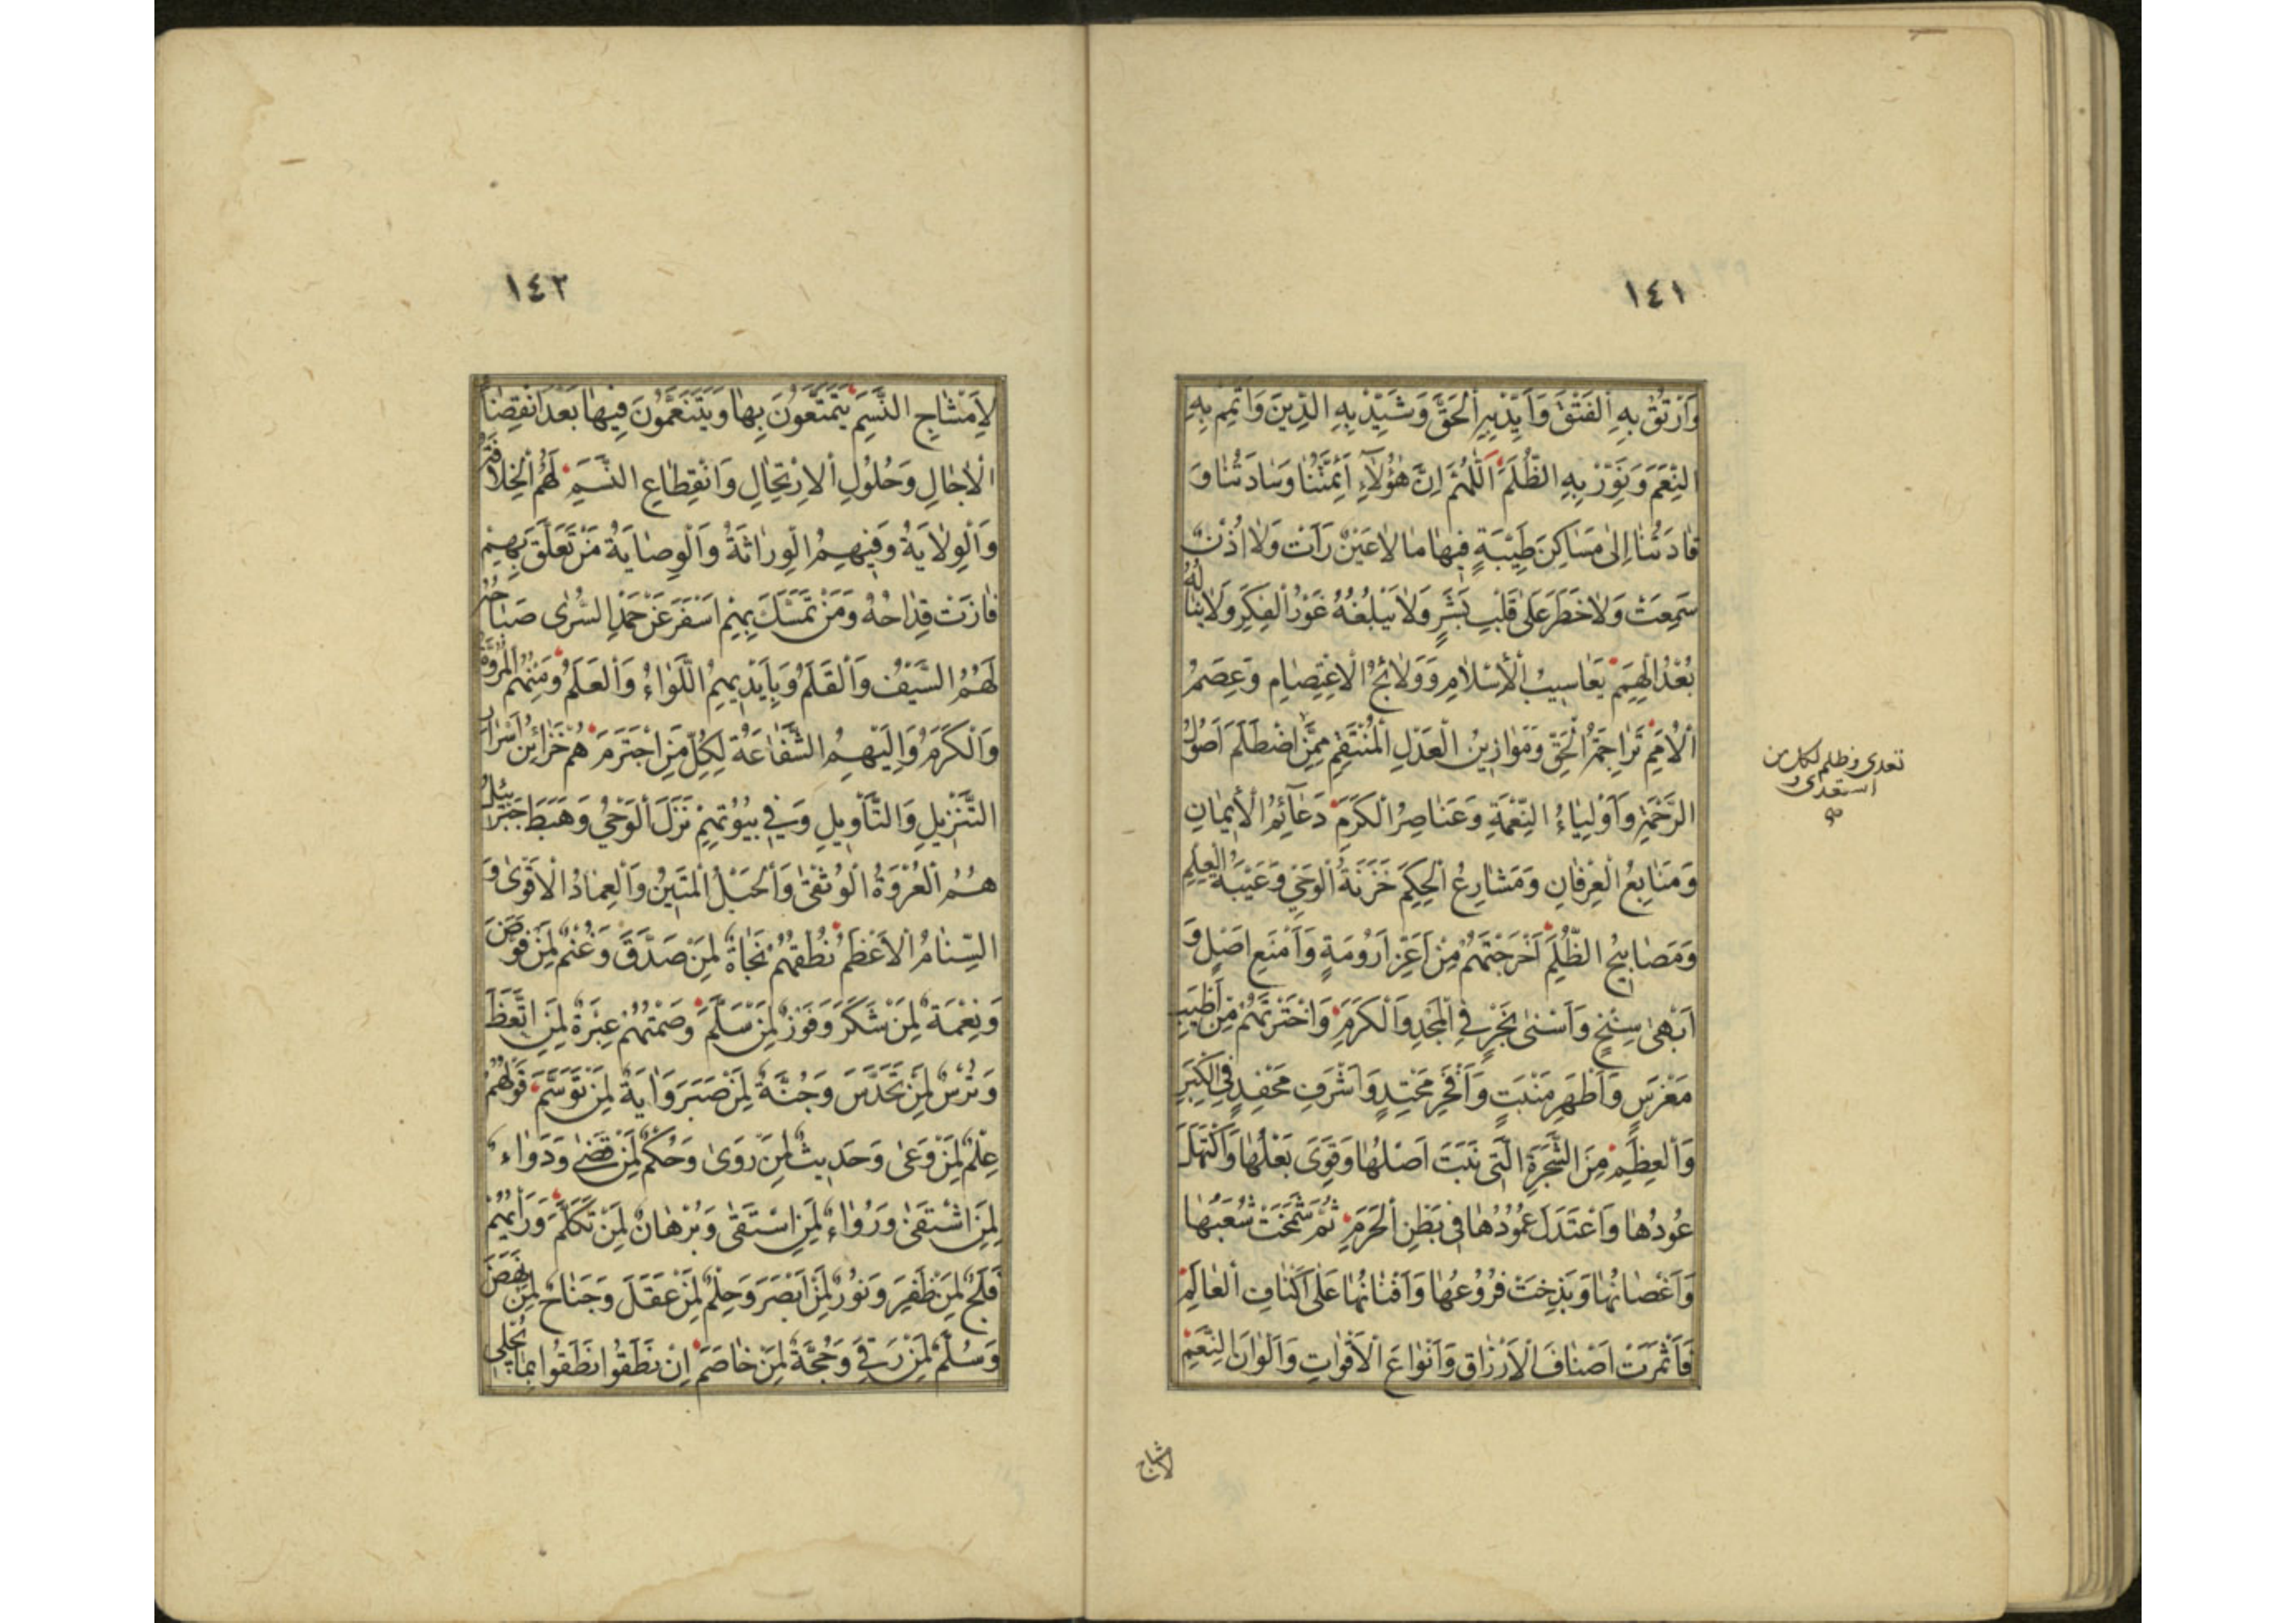 ١٤١
وَارْتُقْ بِهِ الْفَتْقَ وَاَيِّدْ بِهِ الْحَقَّ وَشَيِّدْ بِهِ الدِّينَ وَاَتْمِمْ بِهِ
النِّعَمَ وَنَوِّرْ بِهِ الظُّلَمَ اَللّٰهُمَّ اِنَّ هٰؤُلَآءِ اَئِمَّتُنَا وَسَادَتُنَا وَ
قَادَتُنَا اِلىٰ مَسَاكِنَ طَيِّبَةٍ فِيهَا مَا لَا عَيْنٌ رَاَتْ وَلَا اُذُنٌ
سَمِعَتْ وَلَا خَطَرَ عَلىٰ قَلْبِ بَشَرٍ وَلَا يَبْلُغُهُ غَوْرُ الْفِكَرِ وَلَا يَنَالُهُ
بُعْدُ الْهِمَمِ يَعَاسِيبُ الْاِسْلَامِ وَوَلَائِجُ الْاِعْتِصَامِ وَعِصَمُ
الْاُمَمِ تَرَاجِمَةُ الْحَقِّ وَمَوَازِينُ الْعَدْلِ الْمُنْتَقِمِ مِمَّنِ اضْطَلَمَ اُصُولُ
الرَّحْمَةِ وَاَوْلِيَاءُ النِّعْمَةِ وَعَنَاصِرُ الْكَرَمِ دَعَآئِمُ الْاِيمَانِ
وَمَنَابِعُ الْعِرْفَانِ وَمَشَارِعُ الْحِكَمِ خَزَنَةُ الْوَحْيِ وَعَيْبَةُ الْعِلْمِ
وَمَصَابِيحُ الظُّلَمِ اَخْرَجْتَهُمْ مِنْ اَعَزِّ اَرُومَةٍ وَاَمْنَعِ اَصْلٍ وَ
اَبْهىٰ سِنْخٍ وَاَسْنىٰ نَجْرٍ فِي الْمَجْدِ وَالْكَرَمِ وَاخْتَرْتَهُمْ مِنْ اَطْيَبِ
مَغْرَسٍ وَاَطْهَرِ مَنْبَتٍ وَاَفْخَرِ مَحْتِدٍ وَاَشْرَفِ مَحْفِدٍ فِي الْكِبَرِ
وَالْعِظَمِ مِنَ الشَّجَرَةِ الَّتِي نَبَتَ اَصْلُهَا وَقَوِيَ بَعْلُهَا وَاكْتَهَلَ
عُودُهَا وَاعْتَدَلَ عَمُودُهَا فِي بَطْنِ الْحَرَمِ ثُمَّ شَمَخَتْ شُعَبُهَا
وَاَغْصَانُهَا وَبَذِخَتْ فُرُوعُهَا وَاَفْنَانُهَا عَلىٰ اَكْنَافِ الْعَالَمِ
فَاَثْمَرَتْ اَصْنَافَ الْاَرْزَاقِ وَاَنْوَاعَ الْاَقْوَاتِ وَاَلْوَانَ النِّعَمِ
تعدى وظلم لكل من
استعدى و
لامشاج
١٤٢
لِاَمْشَاجِ النَّسَمِ يَتَمَتَّعُونَ بِهَا وَيَتَنَعَّمُونَ فِيهَا بَعْدَ انْقِضَاءِ
الْاٰجَالِ وَحُلُولِ الْاِرْتِحَالِ وَانْقِطَاعِ النَّسَمِ لَهُمُ الْخِلَافَةُ
وَالْوِلَايَةُ وَفِيهِمُ الْوِرَاثَةُ وَالْوِصَايَةُ مَنْ تَعَلَّقَ بِهِمْ
فَازَتْ قِدَاحُهُ وَمَنْ تَمَسَّكَ بِهِمْ اَسْفَرَ عَنْ حَمْدِ السُّرىٰ صَبَاحُهُ
لَهُمُ السَّيْفُ وَالْقَلَمُ وَبِاَيْدِيهِمُ اللِّوَاءُ وَالْعَلَمُ وَمِنْهُمُ الْمُرُوَّةُ
وَالْكَرَمُ وَاِلَيْهِمُ الشَّفَاعَةُ لِكُلِّ مَنِ اجْتَرَمَ هُمْ خَزَائِنُ اَسْرَارِ
التَّنْزِيلِ وَالتَّأْوِيلِ وَفِي بُيُوتِهِمْ نَزَلَ الْوَحْيُ وَهَبَطَ جَبْرَائِيلُ
هُمُ الْعُرْوَةُ الْوُثْقىٰ وَالْحَبْلُ الْمَتِينُ وَالْعِمَادُ الْاَقْوىٰ وَ
السِّنَامُ الْاَعْظَمُ نُطْقُهُمْ نَجَاةٌ لِمَنْ صَدَّقَ وَغُنْمٌ لِمَنْ فَوَّضَ
وَنِعْمَةٌ لِمَنْ شَكَرَ وَفَوْزٌ لِمَنْ سَلَّمَ وَصَمْتُهُمْ عِبْرَةٌ لِمَنِ اتَّعَظَ
وَتُرْسٌ لِمَنْ تَحَدَّسَ وَجُنَّةٌ لِمَنْ صَبَرَ وَاٰيَةٌ لِمَنْ تَوَسَّمَ قَوْلُهُمْ
عِلْمٌ لِمَنْ وَعىٰ وَحَدِيثٌ لِمَنْ رَوىٰ وَحُكْمٌ لِمَنْ قَضىٰ وَدَوَاءٌ
لِمَنِ اشْتَفىٰ وَرُوَاءٌ لِمَنِ اسْتَقىٰ وَبُرْهَانٌ لِمَنْ تَكَلَّمَ وَرَأْيُهُمْ
فَلْجٌ لِمَنْ ظَفِرَ وَنُورٌ لِمَنْ اَبْصَرَ وَحِلْمٌ لِمَنْ عَقَلَ وَجَنَاحٌ لِمَنْ نَهَضَ
وَسُلَّمٌ لِمَنْ رَقِيَ وَحُجَّةٌ لِمَنْ خَاصَمَ اِنْ نَطَقُوا نَطَقُوا بِمَا